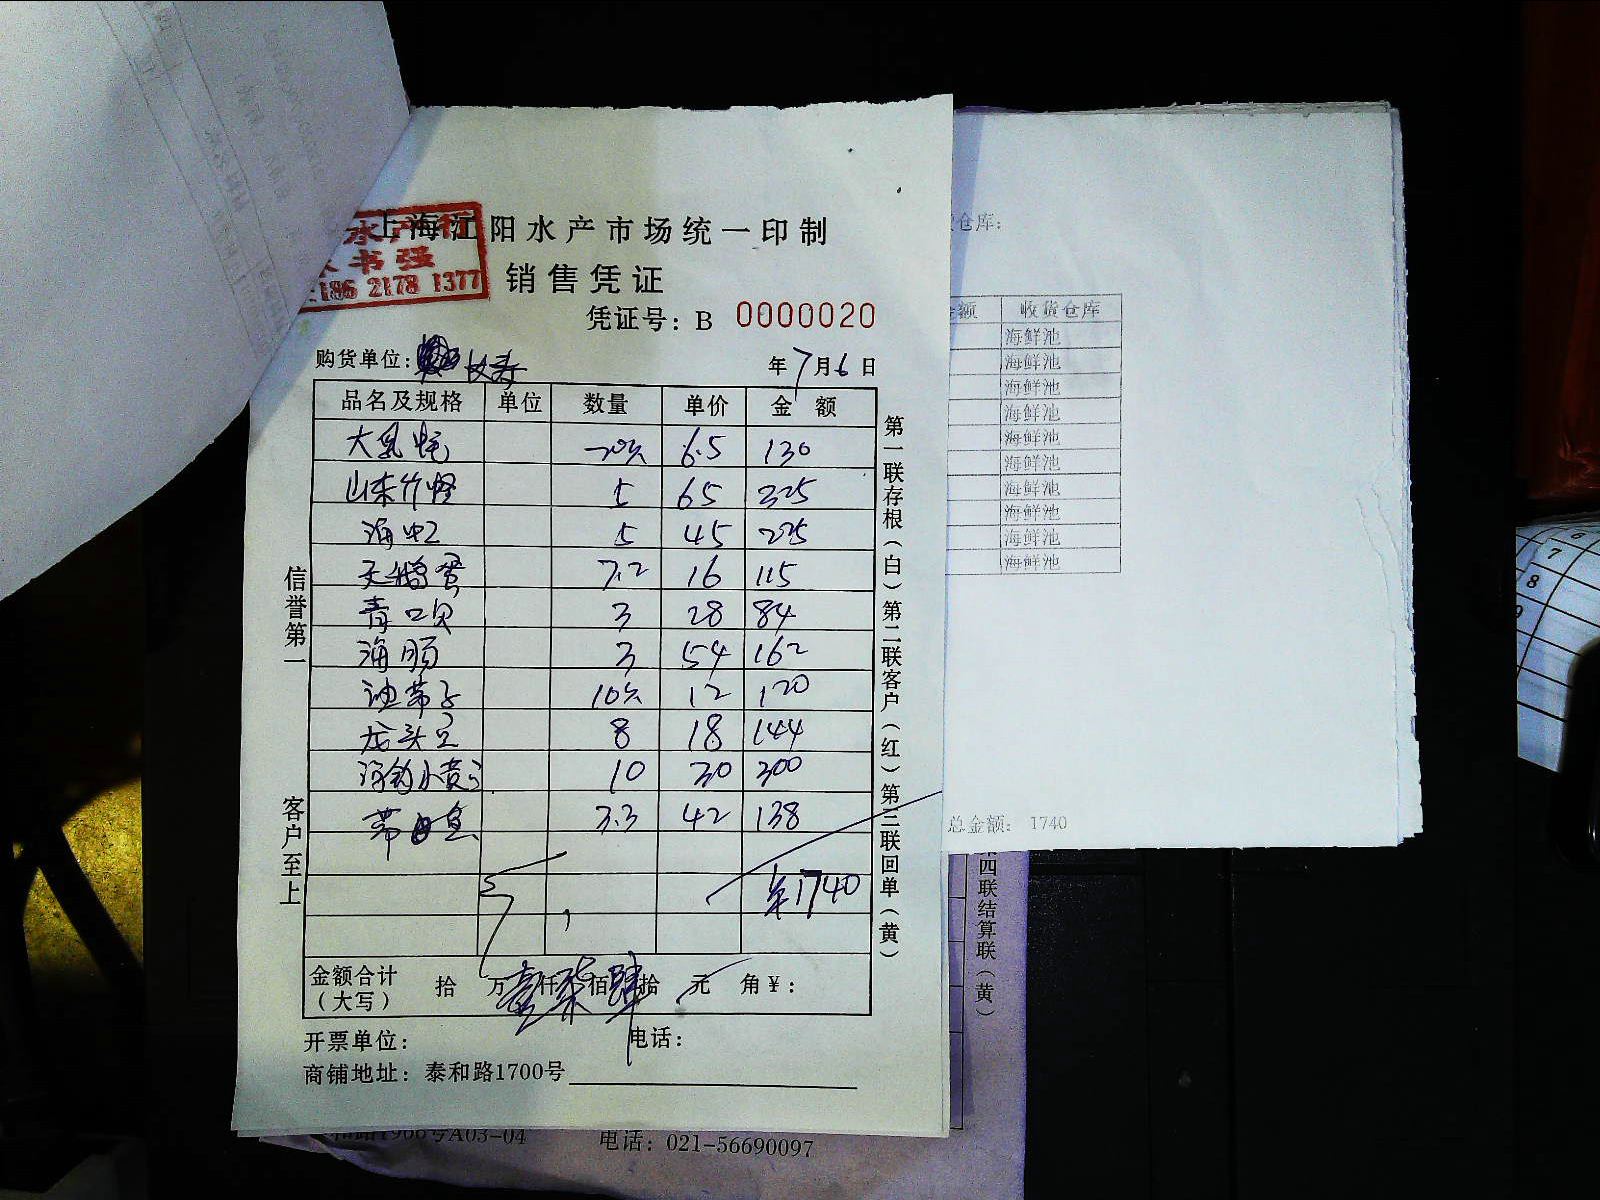 上海江阳水产市场统一印制
水产行
书强
186 2178 1377
销售凭证
凭证号：B 0000020
购货单位: 长寿
年7月6日
品名及规格 单位 数量 单价 金额
大乳蚝 20只 6.5 130
山东竹蛏 5 65 325
海虹 5 45 225
天鹅蛋 7.2 16 115
青口贝 3 28 84
海肠 3 54 162
油带子 10只 12 120
龙头豆 8 18 144
海钓小黄 10 30 300
带鱼 3.3 42 138
¥1740
金额合计（大写） 拾 万 壹 仟 柒 佰 肆 拾 元 角 ¥：
开票单位：
电话：
商铺地址：泰和路1700号
信誉第一
客户至上
第一联存根（白）第二联客户（红）第三联回单（黄）
仓库:
额 收货仓库
海鲜池
海鲜池
海鲜池
海鲜池
海鲜池
海鲜池
海鲜池
海鲜池
海鲜池
海鲜池
总金额: 1740
四联结算联（黄）
和路1906号A03-04
电话：021-56690097
6
7
8
9